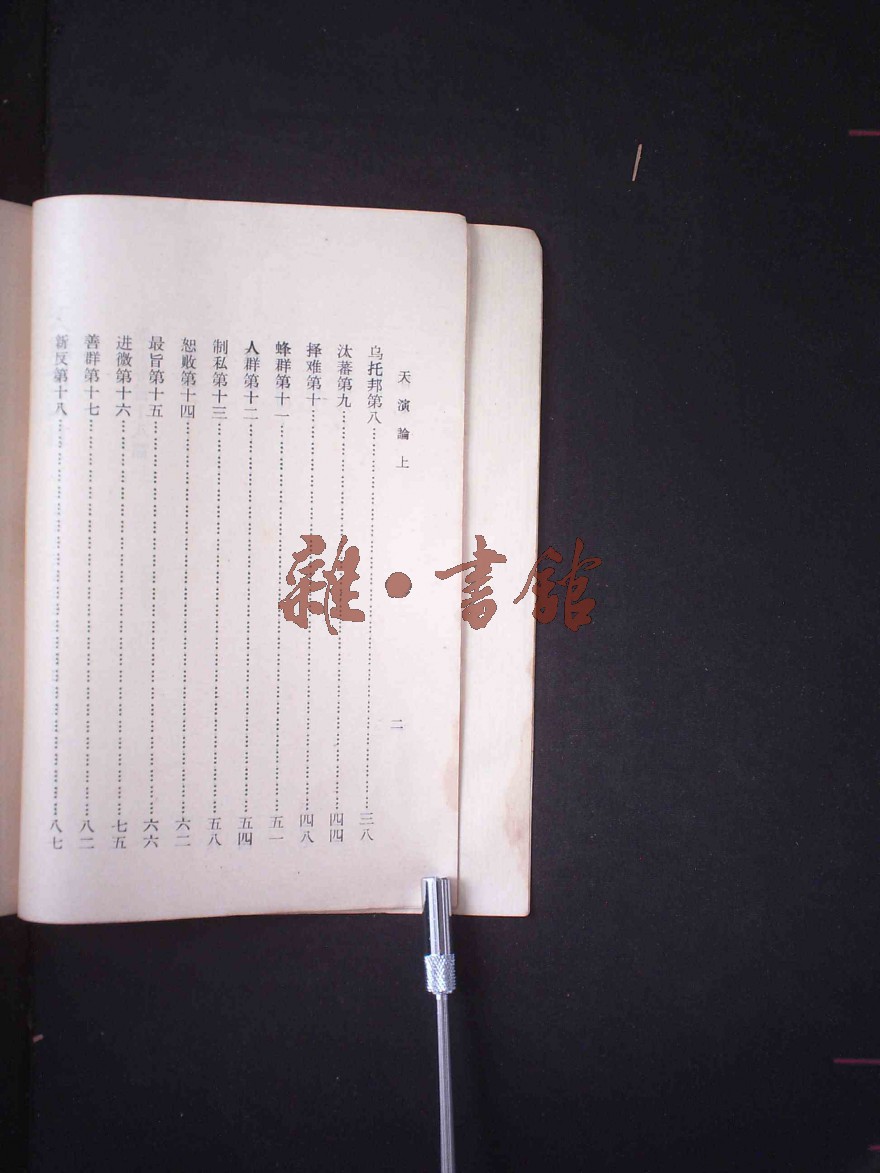 天演論上
二
乌托邦第八……三八
汰蕃第九……四四
择难第十……四八
蜂群第十一……五一
人群第十二……五四
制私第十三……五八
恕敗第十四……六二
最旨第十五……六六
进微第十六……七五
善群第十七……八二
新反第十八……八七
雜·書館